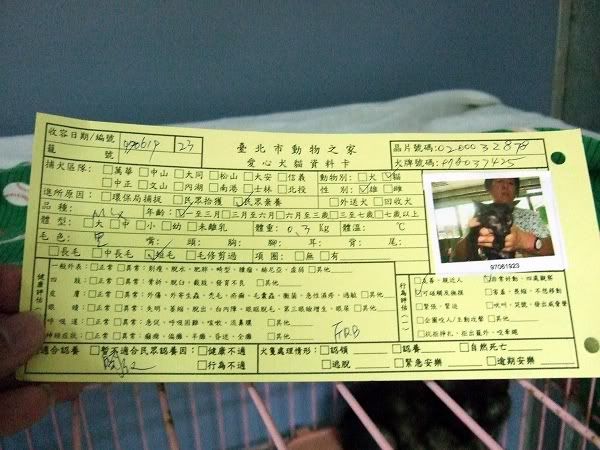 臺北市動物之家
愛心犬貓資料卡
收容日期/編號 970619 23
籠 號
晶片號碼:0200032878
犬牌號碼:
捕犬區隊: □萬華 □中山 □大同 □松山 □大安 □信義 動物別:□犬 貓
□中正 □文山 □內湖 □南港 □士林 □北投 性 別: 雄 □雌
進所原因: □環保局捕捉 □民眾拾獲 民眾棄養 □外送犬 □回收犬
品 種: Mix 年齡: 一至三月 □三至六月 □六月至三歲 □三至七歲 □七歲以上
體 型: □大 □中 □小 □幼 □未離乳 體重: 0.3 Kg 體溫: ℃
毛 色: 黑 背: 頭: 胸: 腳: 耳: 背: 尾:
□長毛 □中長毛 短毛 □毛修剪過 項 圈: □無 □有
97061923
健康評估(一)
一般外表: □正常 □異常:削瘦、脫水、肥胖、畸型、腫瘤、赫尼亞、虛弱 □其他
四 肢: □正常 □異常:骨折、脫臼、截肢、發育不良 □其他
皮 膚: □正常 □異常:外傷、外寄生蟲、禿毛、疥癬、毛囊蟲、黴菌、急性濕疹、過敏 □其他
眼 睛: □正常 □異常:失明、萎縮、脫出、白內障、眼眶脫毛、第三眼瞼增生、眼屎 □其他
呼 吸 道: □正常 □異常:急促、呼吸困難、咳嗽、流鼻膿 □其他
神經症狀: □正常 □異常:癲癇、偏癱、半癱、昏迷、全癱 □其他
行為評估(一)
友善、親近人 非常好動、四處觀察
可碰觸及撫摸 □害羞、畏縮、不想移動
□緊張、緊迫 □吠叫、哭號、發出威脅聲
□企圖咬人/主動攻擊 □其他
□抗拒掙扎、拒出籠外、咬牽繩
FDB
適合認養 □暫不適合民眾認養因: □健康不適 □行為不適
犬隻處理情形: □認領 □認養 □自然死亡
□逃脫 □緊急安樂 □逾期安樂